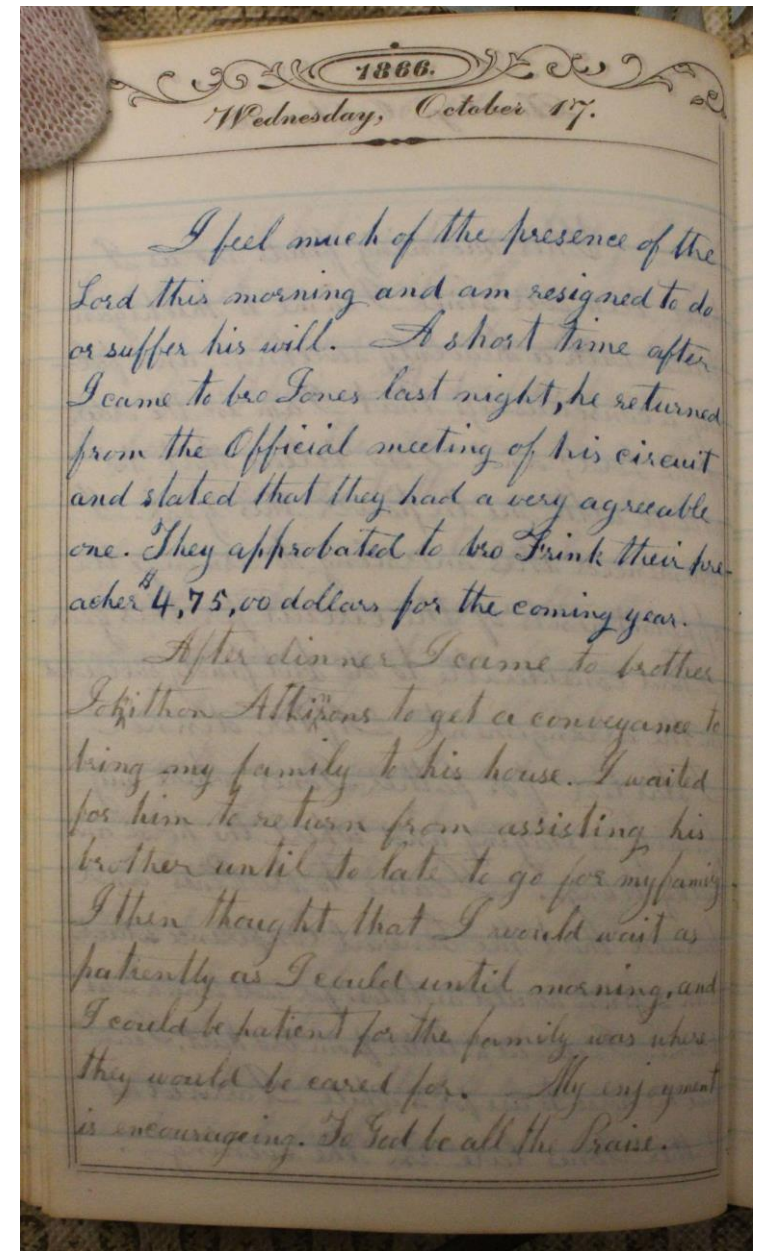 1866.
Wednesday, October 17.
I feel much of the presence of the
Lord this morning and am resigned to do
or suffer his will. A short time after
I came to bro Jones last night, he returned
from the Official meeting of his circuit
and stated that they had a very agreeable
one. They approbated to bro Frink their pre-
acher $4,75,00 dollars for the coming year.
After dinner I came to brother
to get a conveyance to
bring my family to his house. I waited
for him to return from assisting his
brother until to late to go for my family
I then thought that I would wait as
patiently as I could until morning, and
I could be patient for the family was where
they would be cared for. My enjoyment
is encourageing. To God be all the Praise.